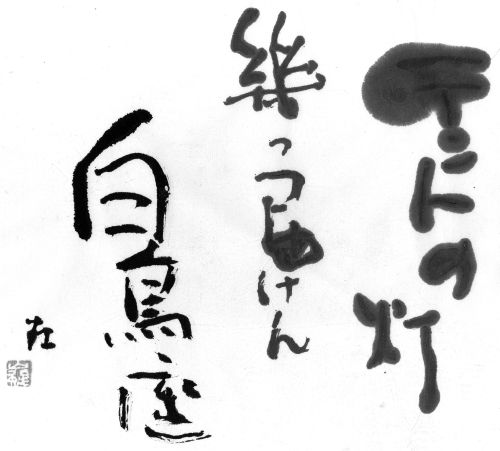 テントの灯
幾つ
けん
白鳥座
左